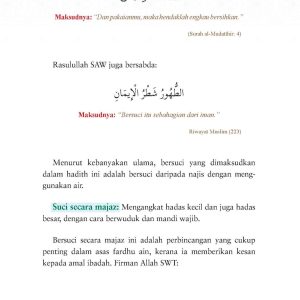 Maksudnya: "Dan pakaianmu, maka hendaklah engkau bersihkan."
(Surah al-Mudathir: 4)
Rasulullah SAW juga bersabda:
الطُّهُورُ شَطْرُ الْإِيمَانِ
Maksudnya: "Bersuci itu sebahagian dari iman."
Riwayat Muslim (223)
Menurut kebanyakan ulama, bersuci yang dimaksudkan
dalam hadith ini adalah bersuci daripada najis dengan meng-
gunakan air.
Suci secara majaz: Mengangkat hadas kecil dan juga hadas
besar, dengan cara berwuduk dan mandi wajib.
Bersuci secara majaz ini adalah perbincangan yang cukup
penting dalam asas fardhu ain, kerana ia memberikan kesan
kepada amal ibadah. Firman Allah SWT: